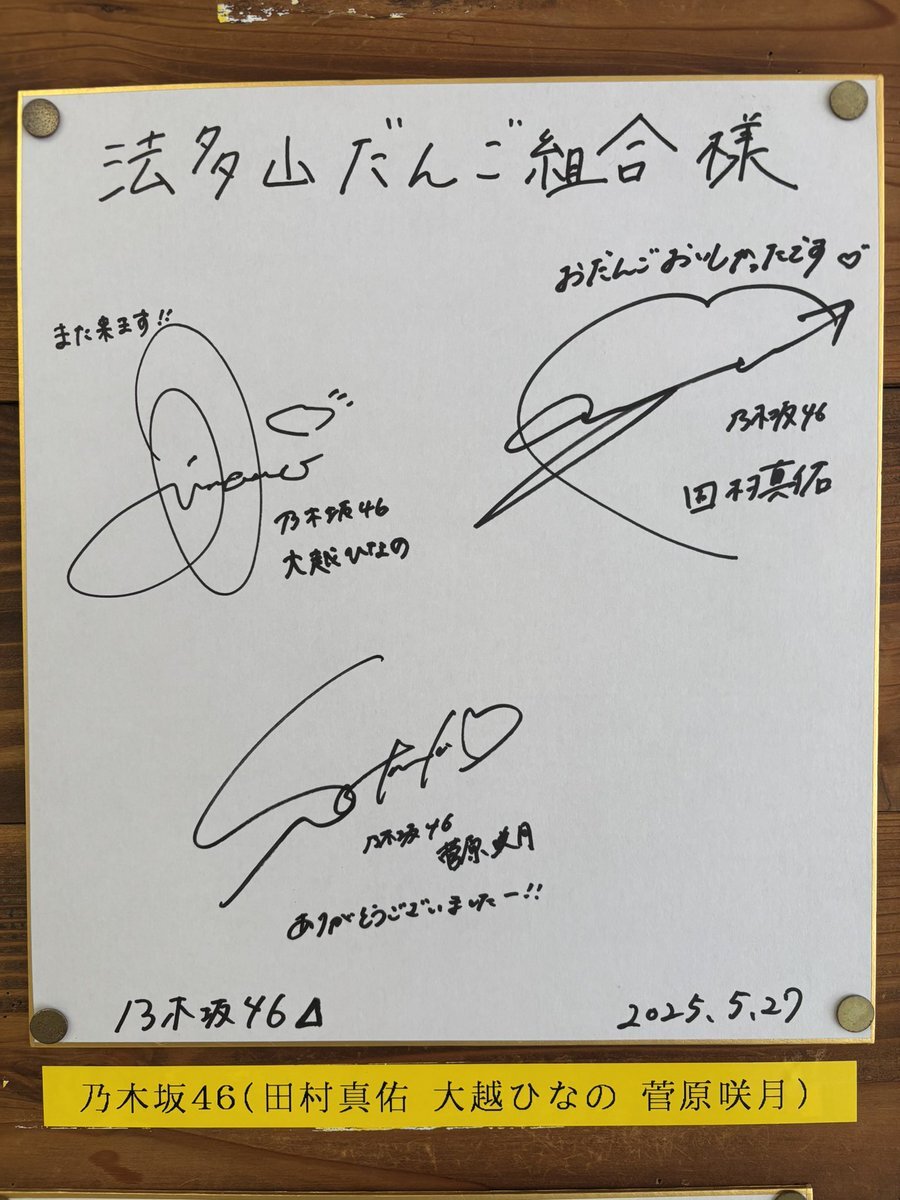 法多山だんご組合様
おだんごおいしかったです♡
乃木坂46
田村真佑
また来ます!!
乃木坂46
大越ひなの
乃木坂46
菅原咲月
ありがとうございましたー!!
乃木坂46
2025.5.27
乃木坂46(田村真佑 大越ひなの 菅原咲月)